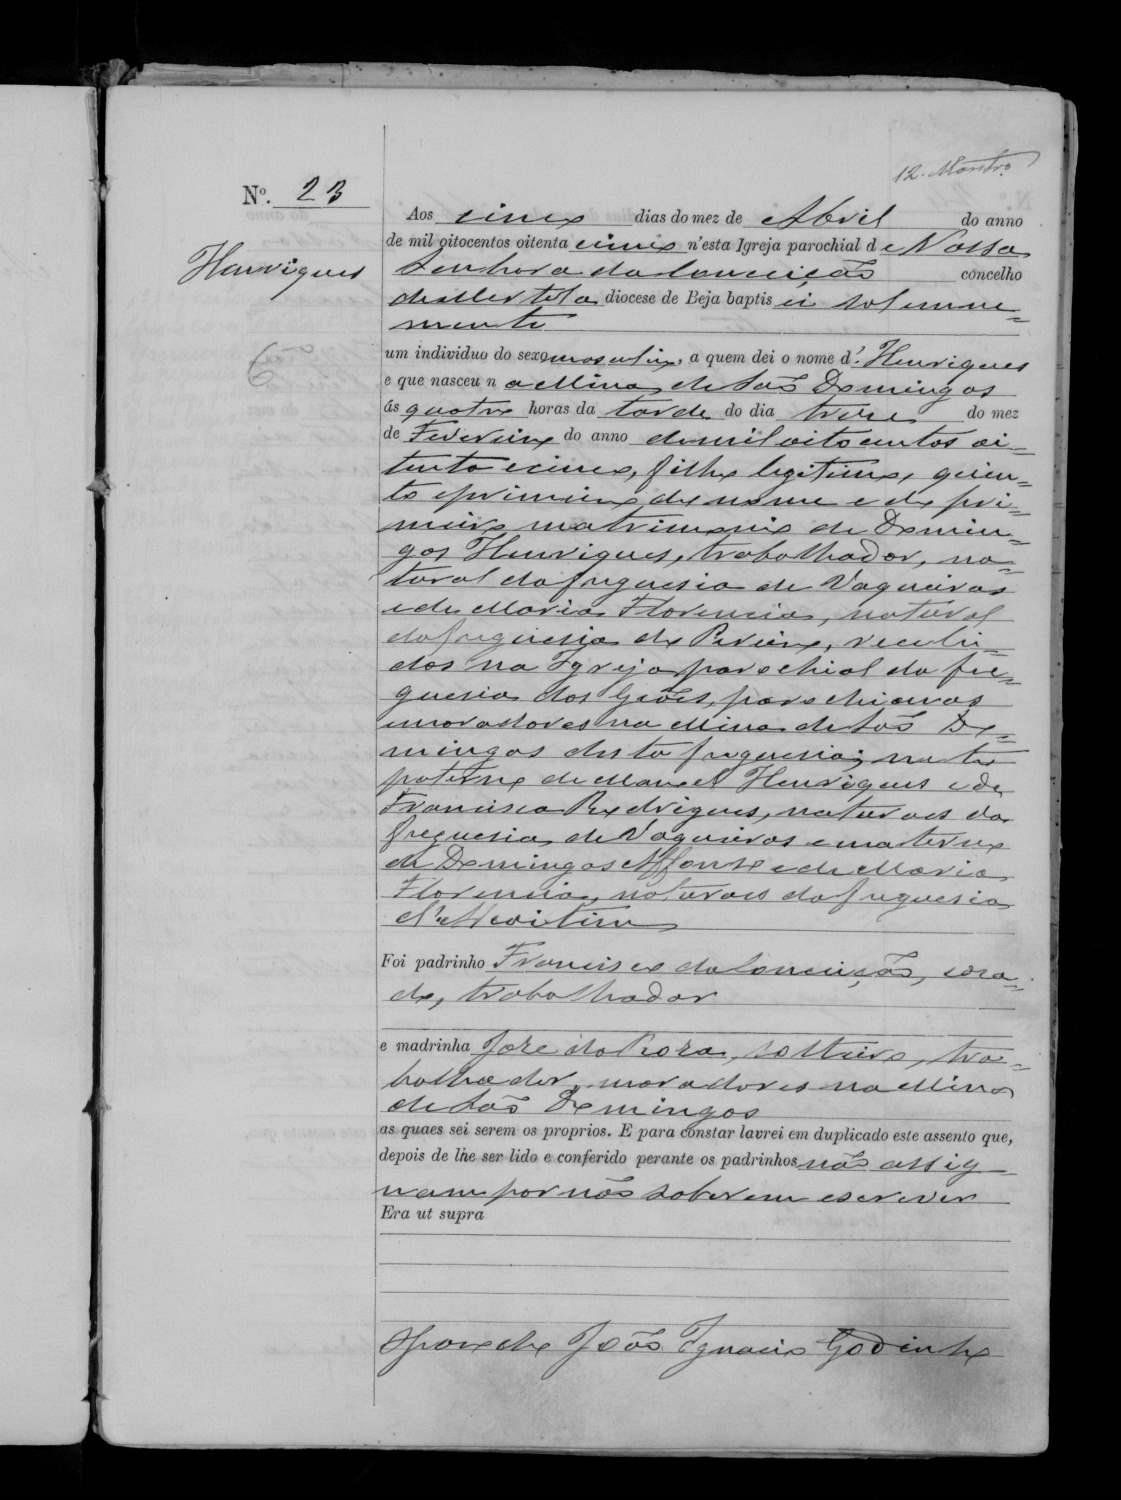 12. Monstro
Nº. 23
Henriques
6
Aos cinco dias do mez de Abril do anno
de mil oitocentos oitenta cinco n'esta Igreja parochial de Nossa
Senhora da Conceição concelho
de Mertola diocese de Beja baptisei solemne=
mente
um individuo do sexo masculino, a quem dei o nome d'. Henriques
e que nasceu na Mina de São Domingos
ás quatro horas da tarde do dia treze do mez
de Fevereiro do anno de mil oitocentos oi=
tenta e cinco, filho legitimo, quin=
to e primeiro do nome e do pri=
meiro matrimonio de Domin=
gos Henriques, trabalhador, na=
tural da freguesia de Vaqueiros
e de Maria Florencia, natural
da freguesia do Pereiro, recebi=
dos na Igreja parochial da fre=
guesia dos Giões, parochianos
moradores na Mina de São Do=
mingos desta freguesia; neto
paterno de Manoel Henriques e de
Francisca Rodrigues, naturaes da
freguesia de Vaqueiros e materno
de Domingos Affonso e de Maria
Florencia, naturaes da freguesia
d'Alcoitim
Foi padrinho Francisco da Conceição, casa=
do, trabalhador
e madrinha José da Roza, solteiro, tra=
balhador, moradores na Mina
de São Domingos
as quaes sei serem os proprios. E para constar lavrei em duplicado este assento que,
depois de lhe ser lido e conferido perante os padrinhos não assig
nam por não saberem escrever
Era ut supra
O Parocho João Ignacio Godinho